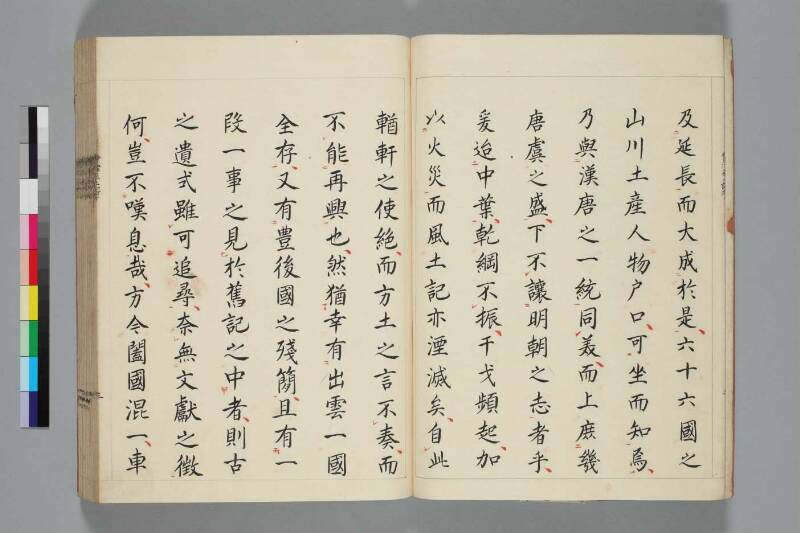 及延長而大成於是六十六國之
山川土産人物户口可坐而知焉
乃與漢唐之一統同美而上庶幾
唐虞之盛下不讓明朝之志者乎
爰迨中葉乾綱不振干戈頻起加
以火災而風土記亦湮滅矣自此
輶軒之使絶而方土之言不奏而
不能再興也然猶幸有出雲一國
全存又有豊後國之殘簡且有一
段一事之見於舊記之中者則古
之遺式雖可追尋奈無文獻之徴
何豈不嘆息哉方今闔國混一車